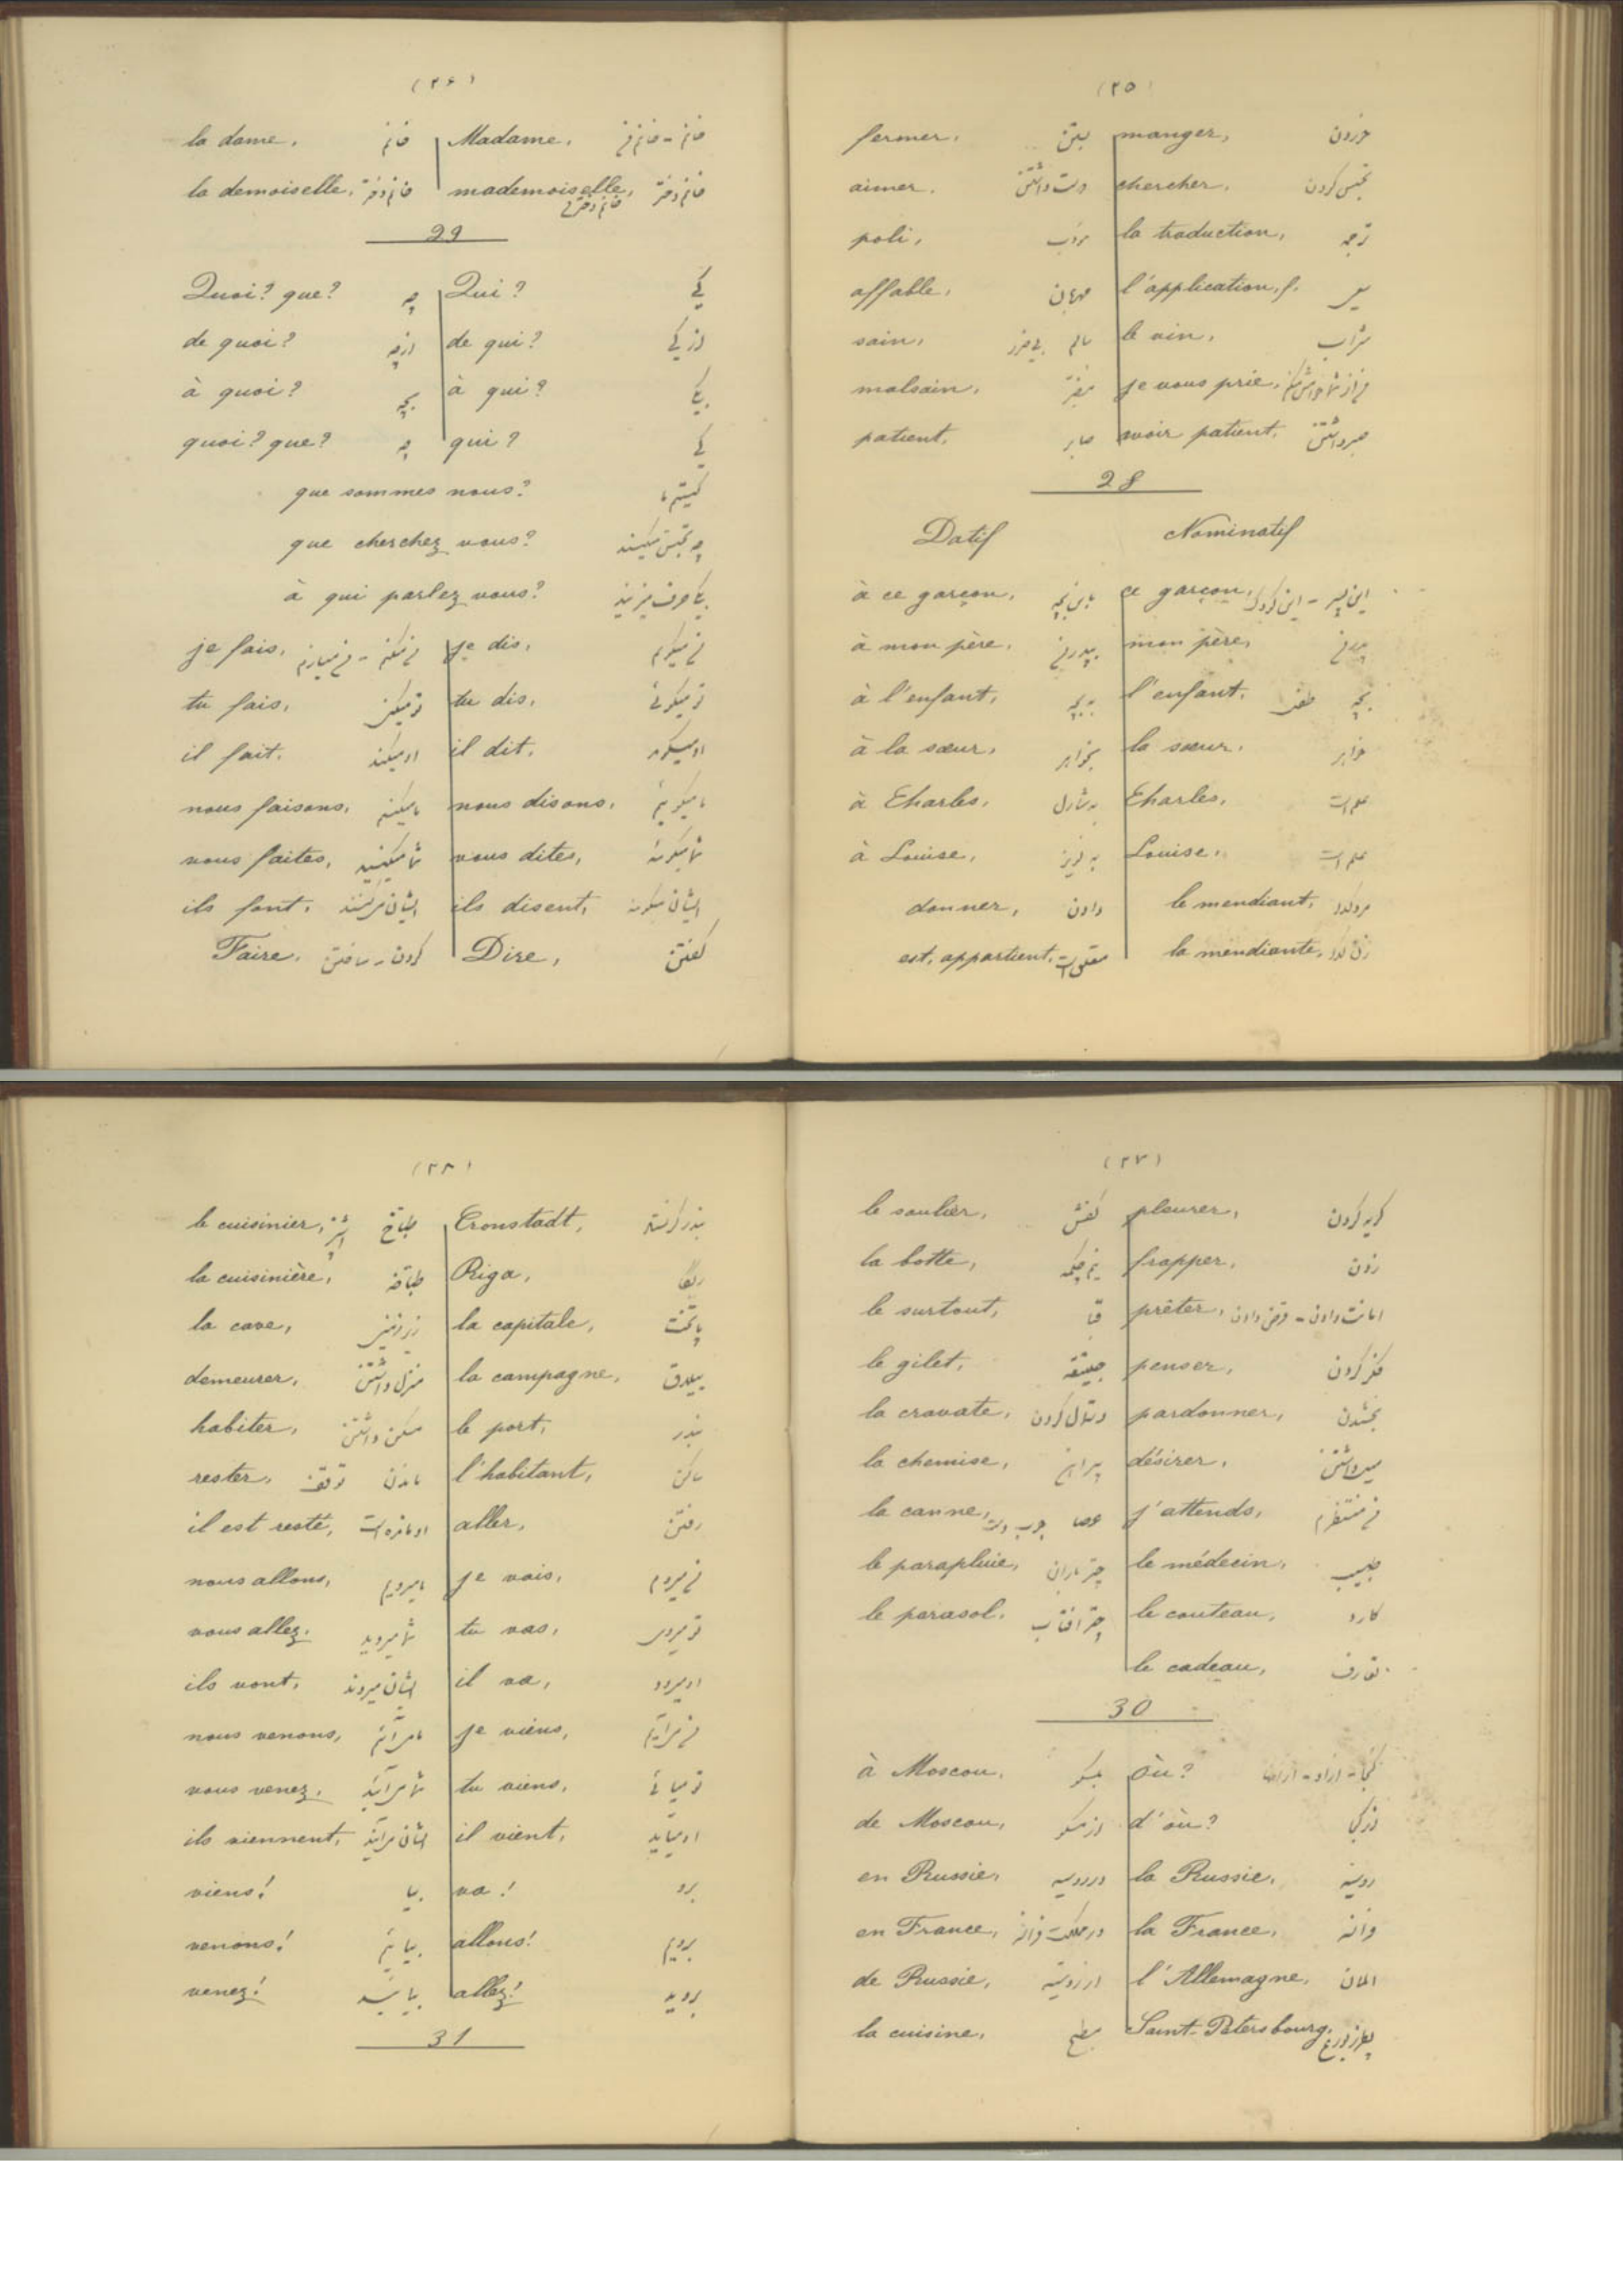 (۲۵)
fermer, بستن manger, خوردن
aimer, دوست داشتن chercher, تجسس کردن
poli, مودب la traduction, ترجمه
affable, مهربان l'application, f. سعی
sain, سالم بی ضرر le vin, شراب
malsain, مضر je vous prie, من از شما خواهش میکنم
patient, صابر avoir patient, صبر داشتن
28
Datif Nominatif
à ce garçon, باین بچه ce garçon, این پسر - این کودک
à mon père, به پدر من mon père, پدر من
à l'enfant, به بچه l'enfant, بچه طفل
à la sœur, بخواهر la sœur, خواهر
à Charles, به شارل Charles, علم است
à Louise, به لویز Louise, علم است
donner, دادن le mendiant, مرد گدا
est, appartient, متعلق است la mendiante, زن گدا
(۲۶)
la dame, خانم Madame, خانم - خانم من
la demoiselle, خانم دختر mademoiselle, خانم دختر
خانم دختر من
29
Quoi? que? چه Qui? کی
de quoi? از چه de qui? از کی
à quoi? بچه à qui? بکی
quoi? que? چه qui? کی
que sommes nous? کیستیم ما
que cherchez vous? چه تجسس میکنید
à qui parlez vous? بکی حرف میزنید
je fais, من میکنم - من میسازم je dis, من میگویم
tu fais, تو میکنی tu dis, تو میگوئی
il fait, او میکند il dit, او میگوید
nous faisons, ما میکنیم nous disons, ما میگوئیم
vous faites, شما میکنید vous dites, شما میگوئید
ils font, ایشان میکنند ils disent, ایشان میگویند
Faire, کردن - ساختن Dire, گفتن
(۲۷)
le soulier, کفش pleurer, گریه کردن
la botte, نیم چکمه frapper, زدن
le surtout, قبا prêter, امانت دادن - قرض دادن
le gilet, جلیتقه penser, فکر کردن
la cravate, دستمال گردن pardonner, بخشیدن
la chemise, پیراهن désirer, میل داشتن
la canne, عصا چوب دست j'attends, من منتظرم
le parapluie, چتر باران le médecin, طبیب
le parasol, چتر افتاب le couteau, کارد
le cadeau, تعارف
30
à Moscou, بمسکو où? کجا
de Moscou, از مسکو d'où? از کجا
en Russie, در روسیه la Russie, روسیه
en France, در مملکت فرانسه la France, فرانسه
de Russie, از روسیه l'Allemagne, المان
la cuisine, مطبخ Saint-Pétersbourg, پطرزبورغ
(۲۸)
le cuisinier, طباخ آشپز Cronstadt, بندر کرنستاد
la cuisinière, طباخه Riga, ریگا
la cave, زیرزمین la capitale, پاتخت
demeurer, منزل داشتن la campagne, ییلاق
habiter, مسکن داشتن le port, بندر
rester, ماندن توقف l'habitant, ساکن
il est resté, او مانده است aller, رفتن
nous allons, ما میرویم je vais, من میروم
vous allez, شما میروید tu vas, تو میروی
ils vont, ایشان میروند il va, او میرود
nous venons, ما می آئیم je viens, من می آیم
vous venez, شما می آئید tu viens, تو میائی
ils viennent, ایشان می آیند il vient, او میآید
viens! بیا va! برو
venons! بیائیم allons! برویم
venez! بیائید allez! بروید
31